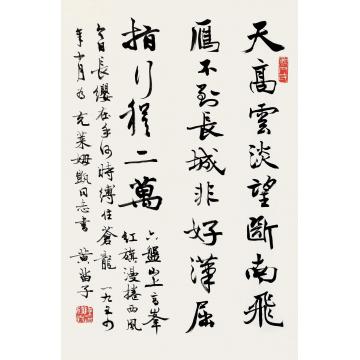 天高雲淡望斷南飛
鴈不到長城非好漢屈
指行程二萬
六盤山上高峯
紅旗漫捲西風
今日長纓在手何時縛住蒼龍 一九五
年十月為克萊姆甄同志書 黃苗子